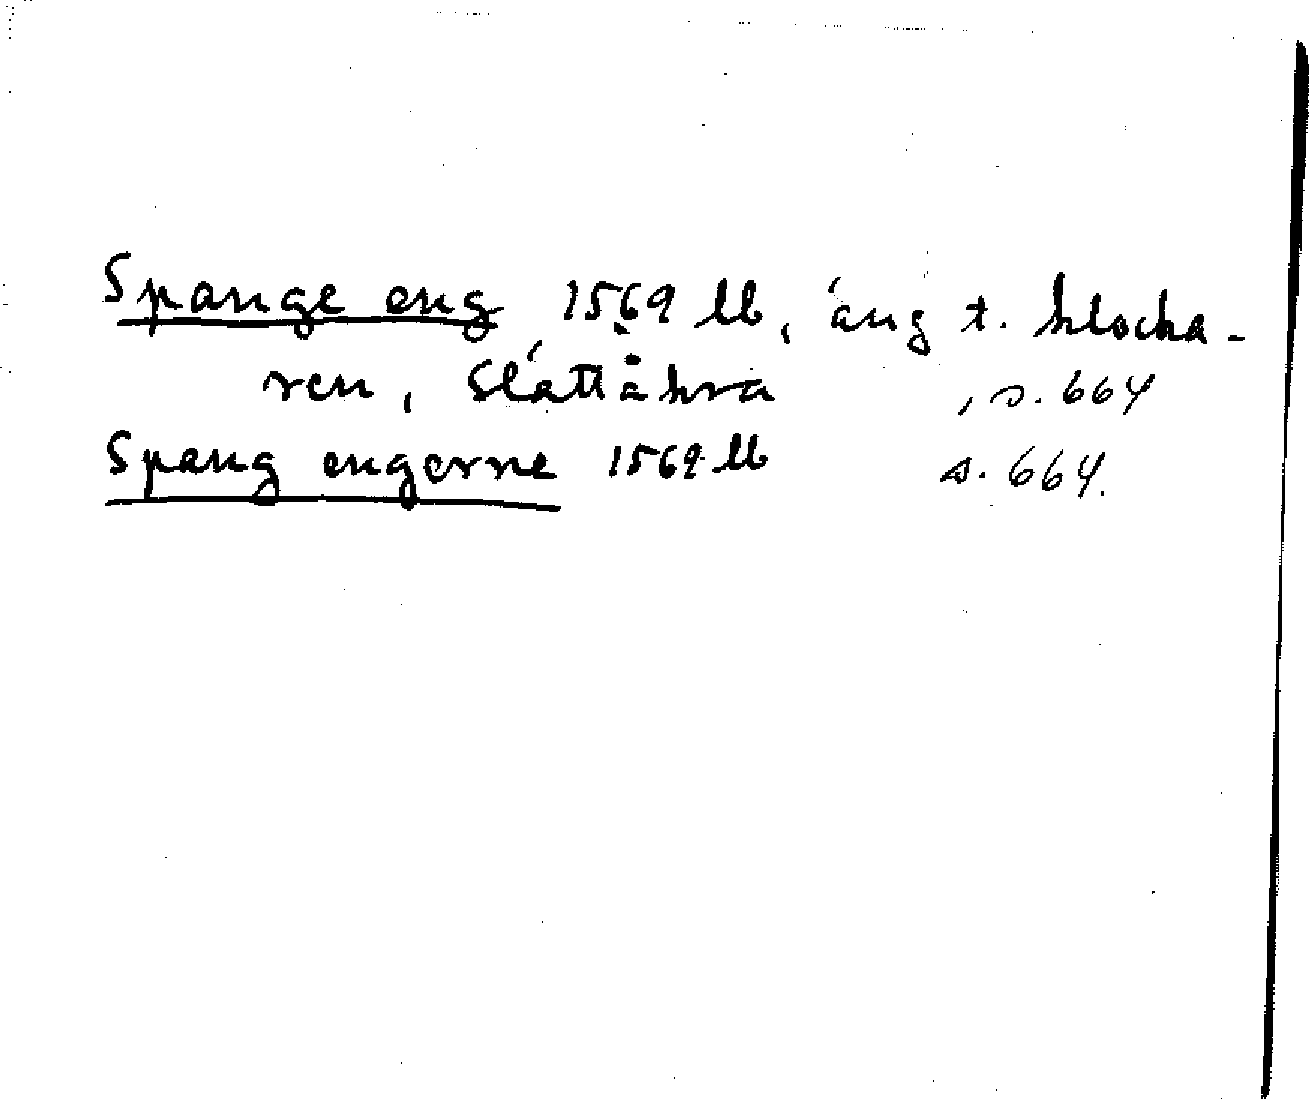 Spange eng 1569 lb, äng t. klocka-
ren, Slättåkra , s. 664
Spang engerne 1569 lb s. 664.